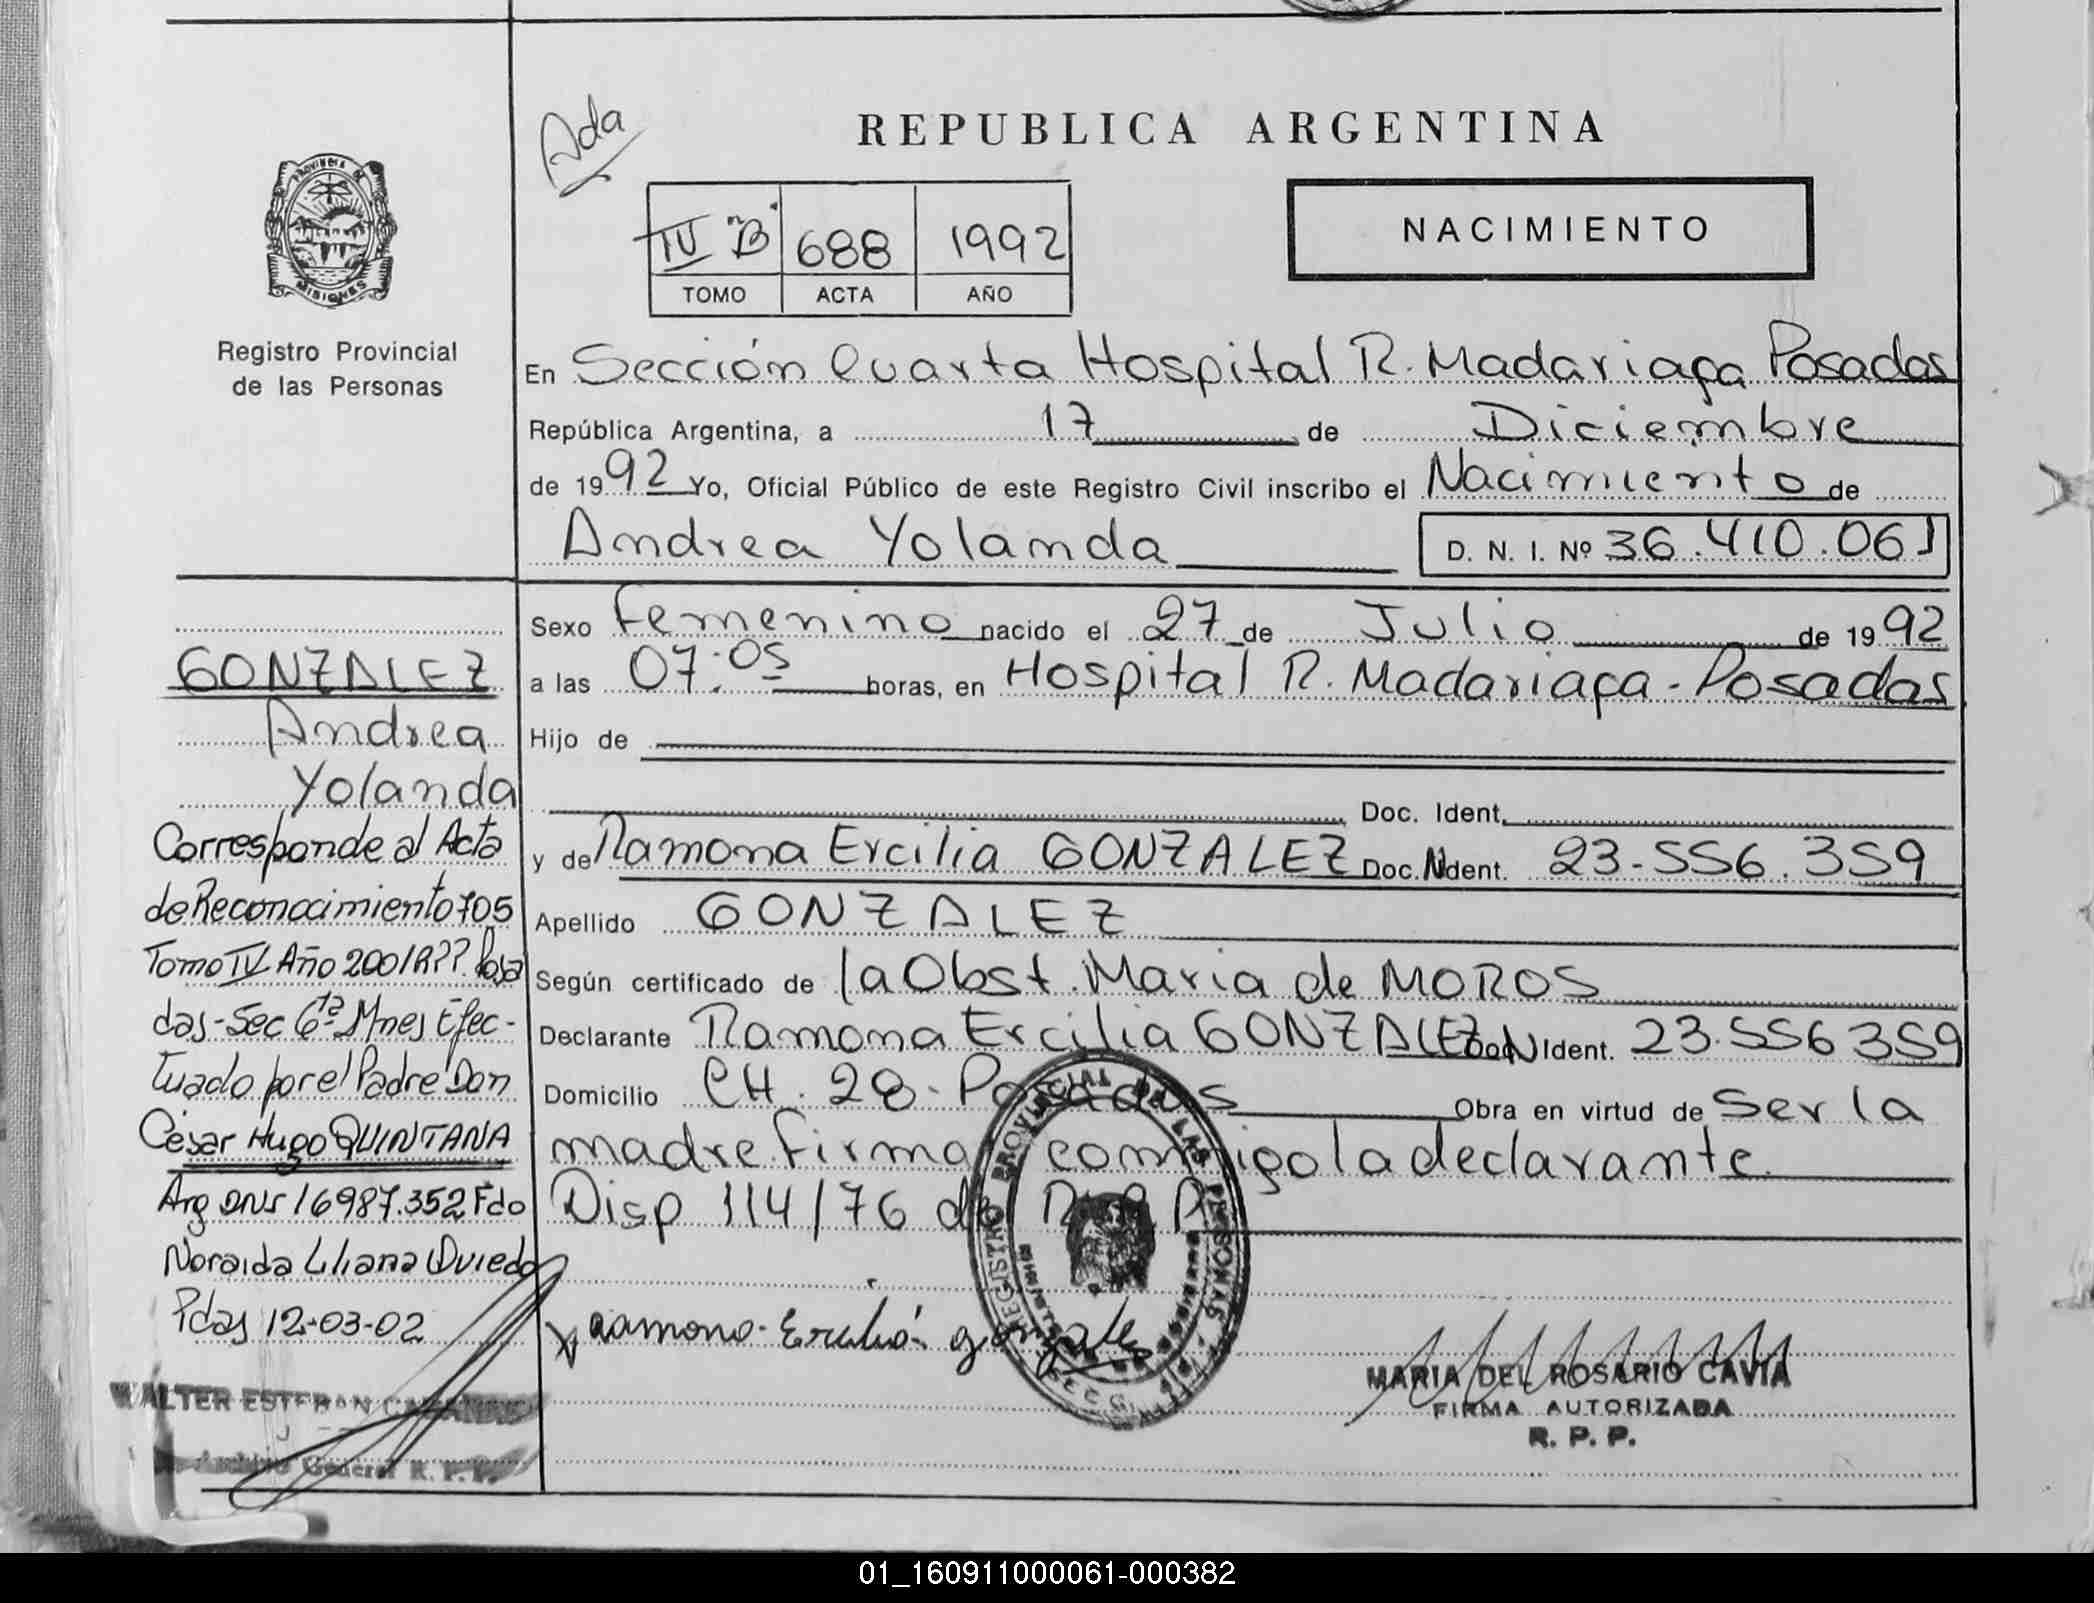 Ada
REPUBLICA ARGENTINA
IV "B" 688 1992
TOMO ACTA AÑO
NACIMIENTO
PROVINCIA DE
MISIONES
Registro Provincial
de las Personas
En Sección Cuarta Hospital R. Madariaga Posadas
República Argentina, a 17 de Diciembre
de 1992 Yo, Oficial Público de este Registro Civil inscribo el Nacimiento de
Andrea Yolanda D. N. I. Nº 36.410.061
Sexo Femenino nacido el 27 de Julio de 1992
a las 07:05 horas, en Hospital R. Madariaga - Posadas
Hijo de
Doc. Ident.
y de Ramona Ercilia GONZALEZ Doc. Ident. 23-556.359
Apellido GONZALEZ
Según certificado de la Obst. Maria de MOROS
Declarante Ramona Ercilia GONZALEZ Ident. 23.556359
Domicilio CH. 28 - Posadas Obra en virtud de Ser la
madre firma conmigo la declarante.
Disp 114/76 de R.P.P.
Ramona Ercilia
REGISTRO PROVINCIAL DE LAS PERSONAS
MARIA DEL ROSARIO CAVIA
FIRMA AUTORIZADA
R. P. P.
GONZALEZ
Andrea
Yolanda
Corresponde al Acta
de Reconocimiento 705
Tomo IV Año 2001 RPP. Posa
das - Sec 6ª Mnes Efec-
tuado por el Padre Don
César Hugo QUINTANA
Arg DNI 16987.352 Fdo
Noraida Liliana Oviedo
Pdas 12-03-02
WALTER ESTEBAN
Archivo General R. P. P.
01_160911000061-000382